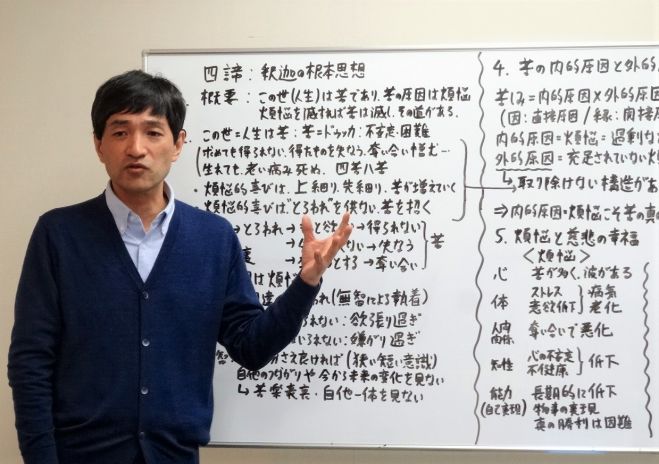 四諦：釈迦の根本思想
概要：この世(人生)は苦であり、苦の原因は煩悩
煩悩を滅すれば苦は滅し、その道がある。
この世＝人生は苦：苦＝ドゥッカ：不安定・困難
求めても得られない、得たものを失なう、奪い合い憎む…
生れても、老い病み死ぬ。四苦八苦
・煩悩的喜びは、上細り、先細り、苦が増えていく
・煩悩的喜びは、"とらわれ"を伴ない、苦を招く
とらわれ→
と欲
→得られない
ない→失なう
とする→奪い合い
苦
は煩
われ(無智による執着)
られない：欲張り過ぎ
いられない：嫌がり過ぎ
さえ良ければ(狭い短い意識)
自他のつながりや今から未来の変化を見ない
↳苦楽表裏・自他一体を見ない
4. 苦の内的原因と外的
苦しみ＝内的原因×外的
(因：直接原因/縁：間接
内的原因＝煩悩＝過剰な
外的原因＝充足されていない
↳取り除けない構造があ
⇒内的原因・煩悩こそ苦の真
5. 煩悩と慈悲の幸福
<煩悩>
心 苦が多く、波がある
体 ストレス 意欲低下 } 病気 老化
人間関係 奪い合いで悪化
知性 心の不安定 不健康 } 低下
能力 長期的に低下
(自己実現) 物事の実現
真の勝利は困難